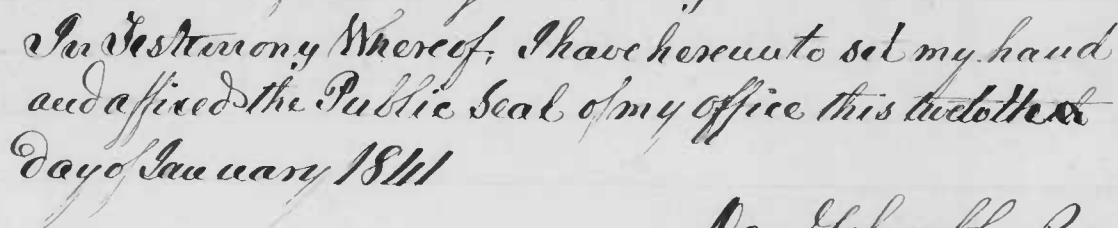 In Testimony Whereof, I have hereunto set my hand
and affixed the Public Seal of my office this
day of January 1841